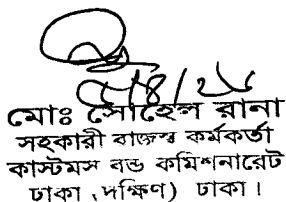 মোঃ সোহেল রানা
সহকারী রাজস্ব কর্মকর্তা
কাস্টমস বন্ড কমিশনারেট
ঢাকা (দক্ষিণ) ঢাকা।